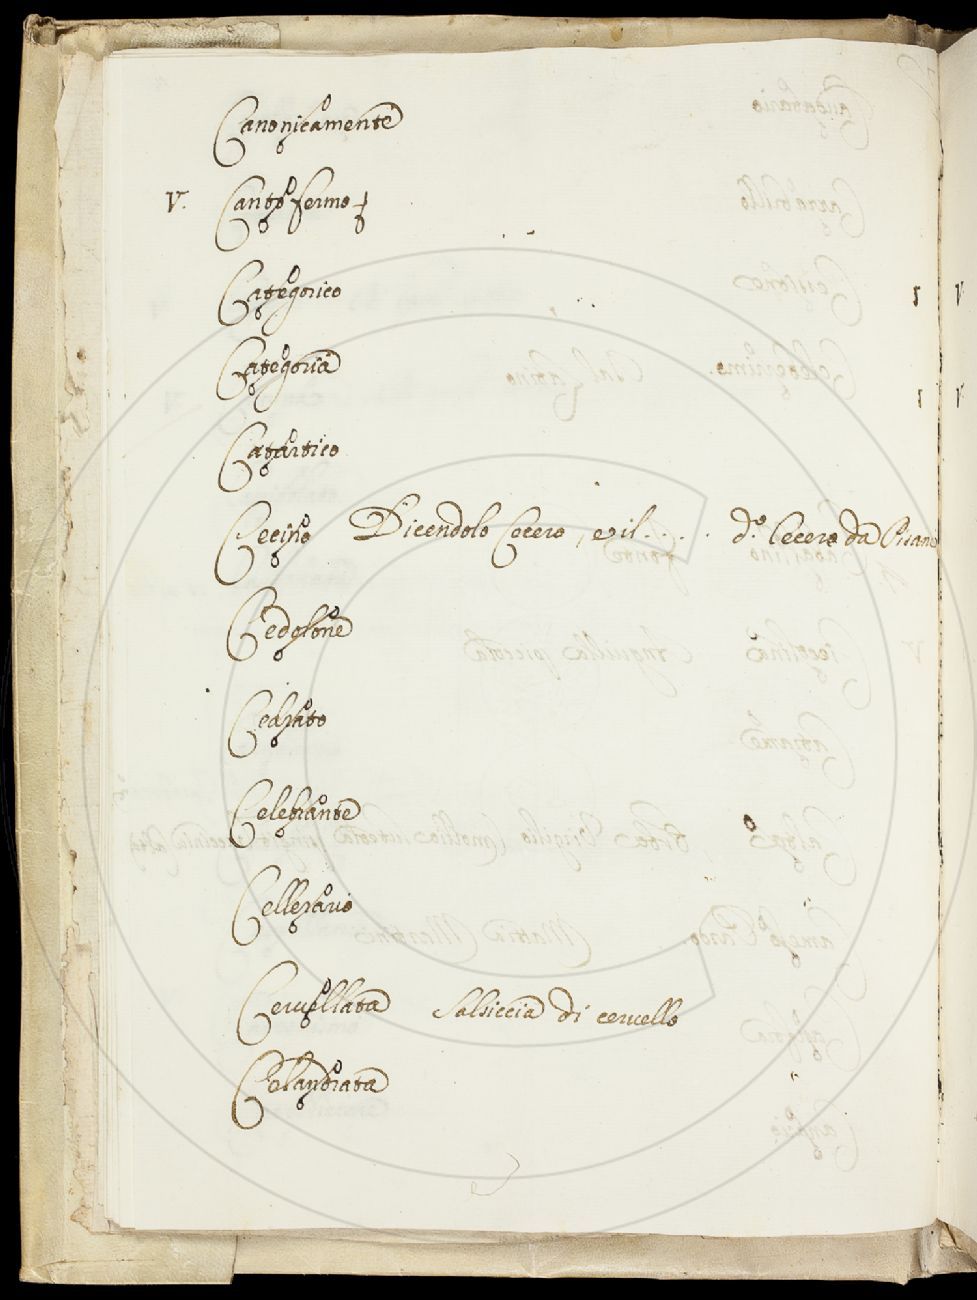 Canonicamente
V. Canto fermo
Categorico
Categoria
Catartico
Cecino Dicendolo Cocero, e il . . . . . d.º Cecero da Pisani
Cedolone
Cedrato
Celebrante
Cellerario
Cervellata Salsiccia di cervello